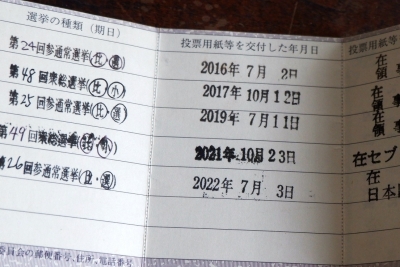 選挙の種類(期日) 投票用紙等を交付した年月日
第24回参通常選挙(比・選) 2016年 7月 2日 在 領事
第48回衆総選挙(比・小) 2017年 10月12日 在 領事
第25回参通常選挙(比・選) 2019年 7月11日 在 領事
第49回衆総選挙 2021年 10月23日 在セブ
第26回参通常選挙(比・選) 2022年 7月 3日 在 日本
委員会の郵便番号、住所、電話番号